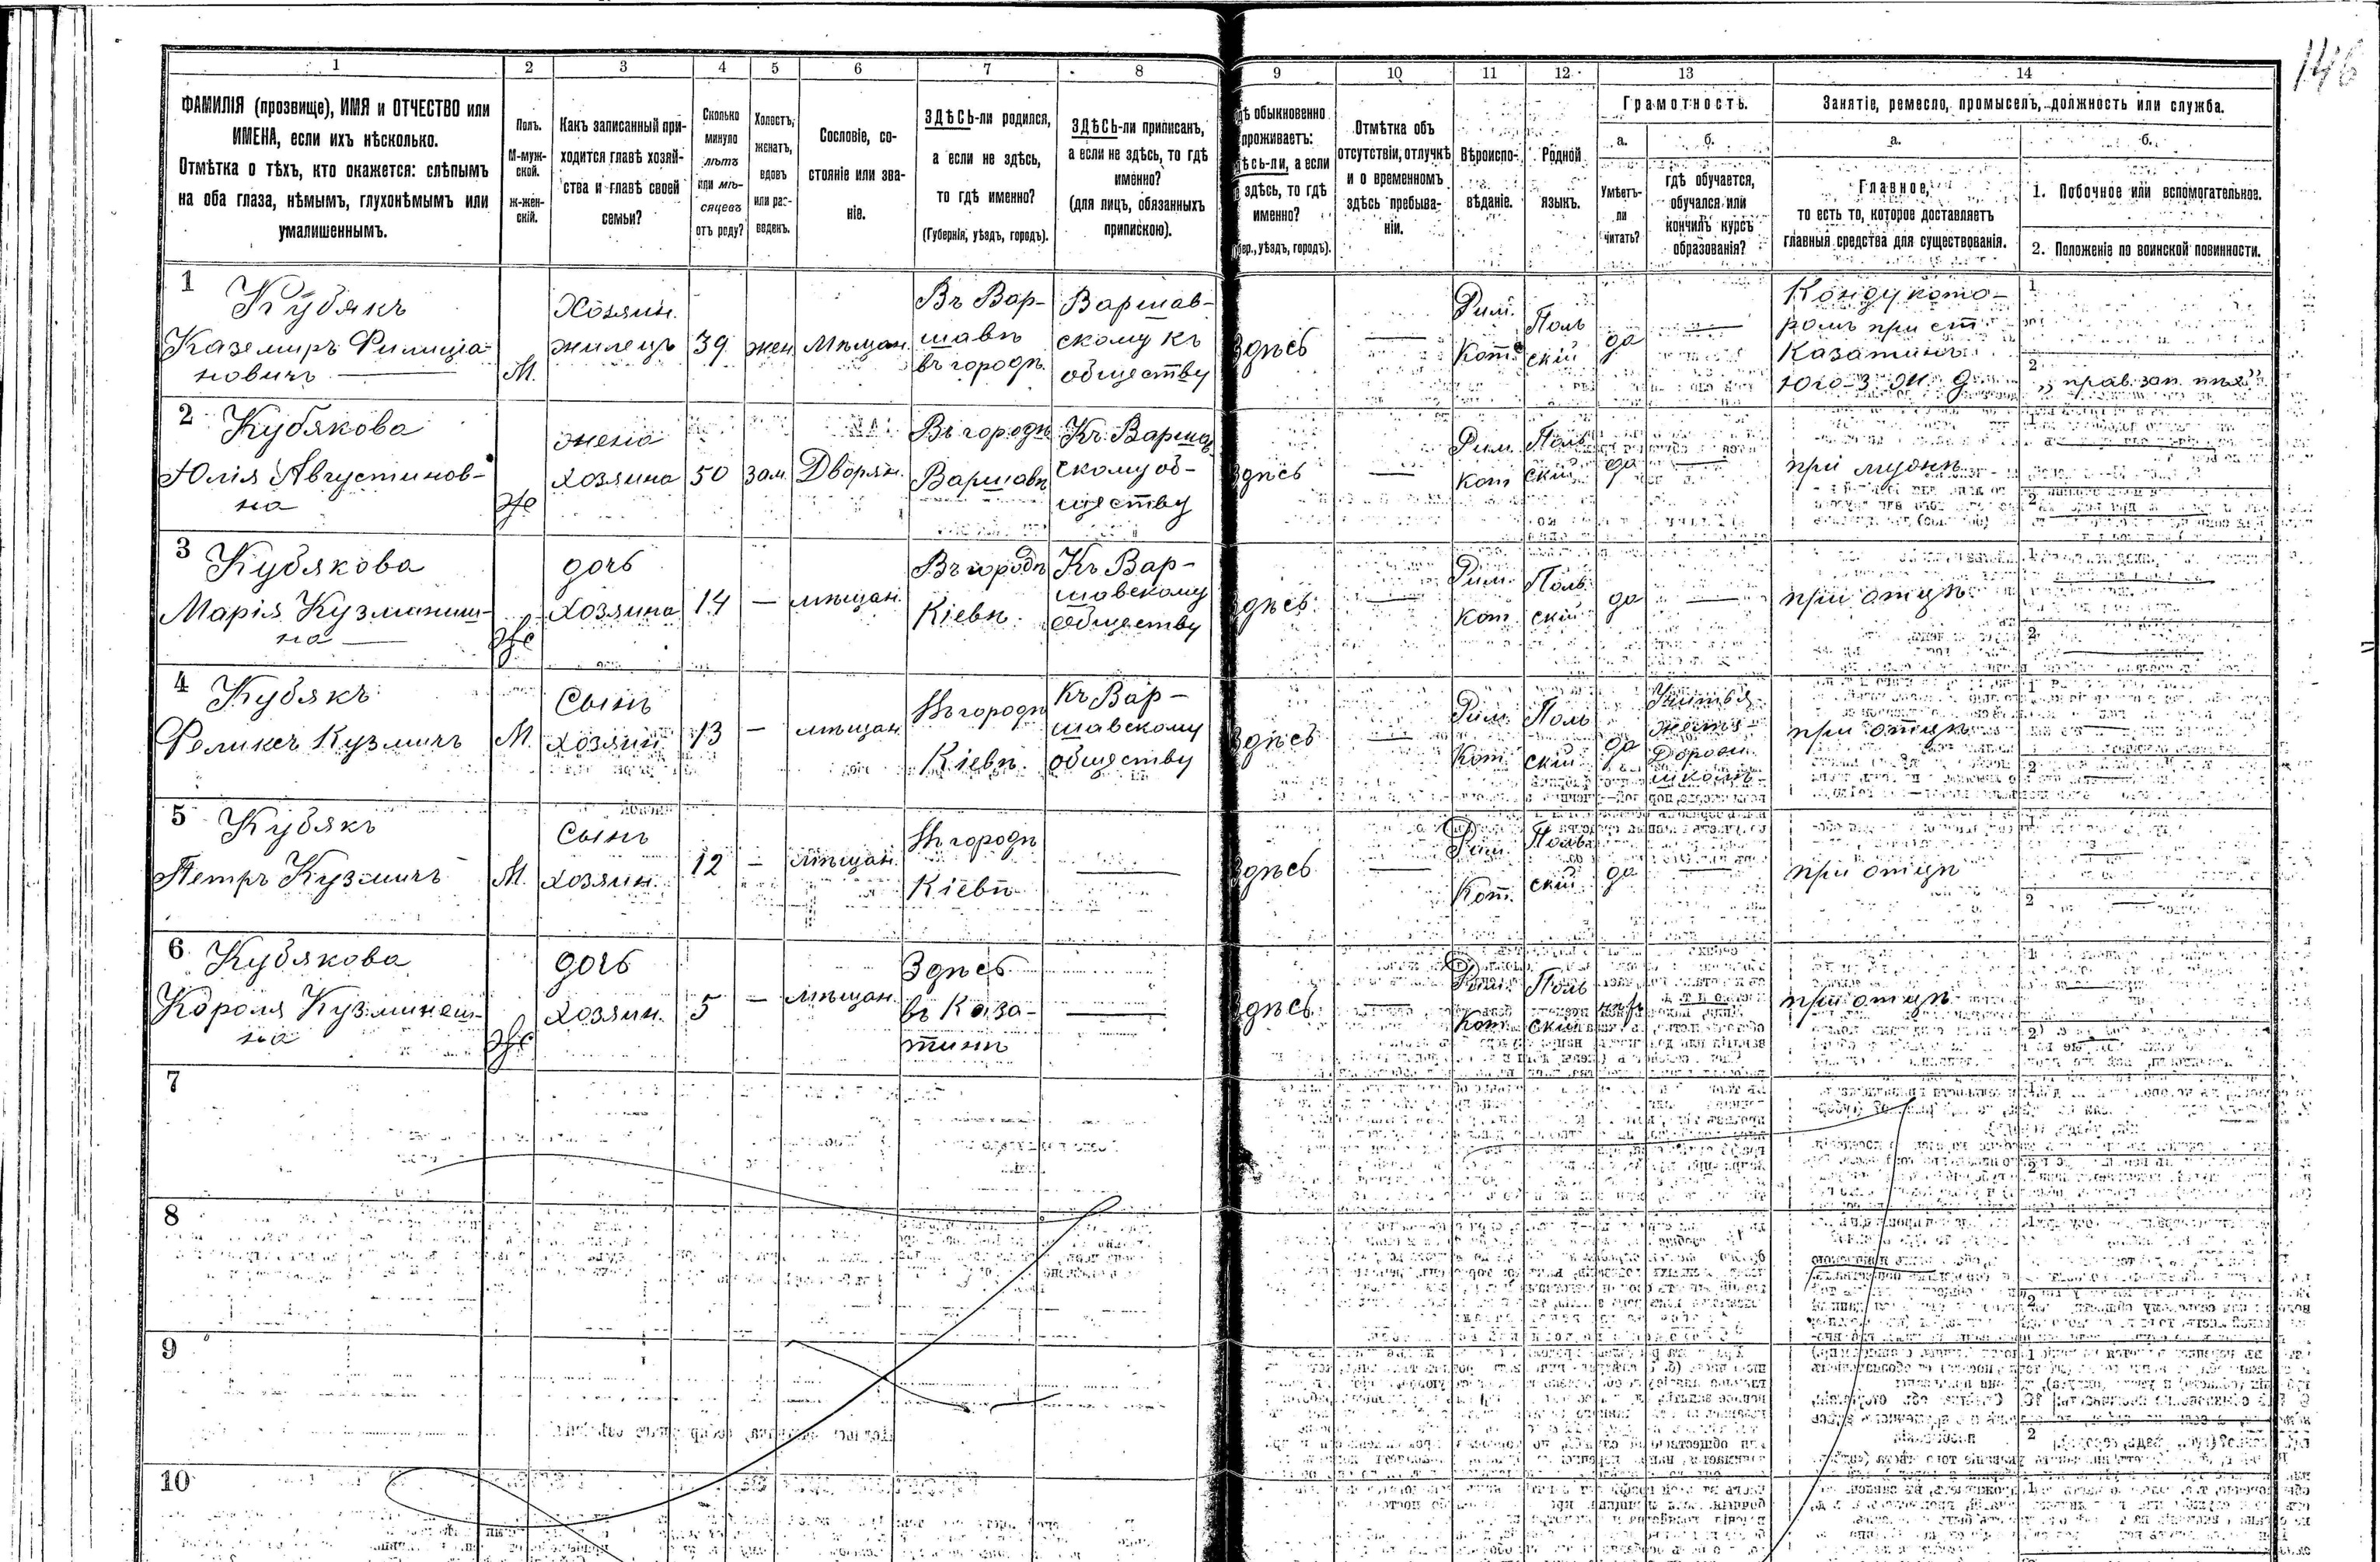 146
1 2 3 4 5 6 7 8 9 10 11 12 13 14
ФАМИЛІЯ (прозвище), ИМЯ и ОТЧЕСТВО или
ИМЕНА, если ихъ нѣсколько.
Отмѣтка о тѣхъ, кто окажется: слѣпымъ
на оба глаза, нѣмымъ, глухонѣмымъ или
умалишеннымъ.
Полъ.
М-муж-
ской.
ж-жен-
скій.
Какъ записанный при-
ходится главѣ хозяй-
ства и главѣ своей
семьи?
Сколько
минуло
лѣтъ
или мѣ-
сяцевъ
отъ роду?
Холостъ,
женатъ,
вдовъ
или раз-
веденъ.
Сословіе, со-
стояніе или зва-
ніе.
ЗДѢСЬ-ли родился,
а если не здѣсь,
то гдѣ именно?
(Губернія, уѣздъ, городъ).
ЗДѢСЬ-ли приписанъ,
а если не здѣсь, то гдѣ
именно?
(для лицъ, обязанныхъ
припискою).
дѣ обыкновенно
проживаетъ:
ѣсь-ли, а если
здѣсь, то гдѣ
именно?
бер., уѣздъ, городъ).
Отмѣтка объ
отсутствіи, отлучкѣ
и о временномъ
здѣсь пребыва-
ніи.
Вѣроиспо-
вѣданіе.
Родной
языкъ.
Грамотность.
а.
Умѣетъ-
ли
читать?
б.
гдѣ обучается,
обучался или
кончилъ курсъ
образованія?
Занятіе, ремесло, промыселъ, должность или служба.
а.
Главное,
то есть то, которое доставляетъ
главныя средства для существованія.
б.
1. Побочное или вспомогательное.
2. Положеніе по воинской повинности.
1
Кубякъ
Каземиръ Филиціа-
новичъ
М.
Хозяин.
жилецъ
39
жен
мѣщан.
Въ Вар-
шавѣ
въ городѣ.
Варшав-
скому къ
обществу
Здѣсь
Рим.
Кат.
Поль
скій
да
Кондукто-
ромъ при ст
Казатинъ
Юго-З. ж. д.
1
2
2
Кубякова
Юлія Августинов-
на
Ж
жена
хозяина
50
зам.
Дворян.
Въ городѣ
Варшавѣ
Къ Варшав
скому об-
ществу
Здѣсь
Рим.
Кат
Поль
скій
да
при мужѣ
1
2
3
Кубякова
Марія Кузминиш-
на
Ж
дочь
хозяина
14
мѣщан.
Въ городѣ
Кіевѣ.
Къ Вар-
шавскому
обществу
Здѣсь
Рим.
Кат
Поль
скій
да
при отцѣ
1
2
4
Кубякъ
Феликсъ Кузмичъ
М.
Сынъ
хозяин
13
мѣщан
Въ городѣ
Кіевѣ.
Къ Вар-
шавскому
обществу
Здѣсь
Рим.
Кат
Поль
скій
да
при отцѣ
1
2
5
Кубякъ
Петръ Кузмичъ
М.
Сынъ
хозяин.
12
мѣщан.
Въ городѣ
Кіевѣ
Здѣсь
Рим.
Кат.
Поль
скій
да
при отцѣ
1
2
6
Кубякова
Кароля Кузминеш-
на
Ж
дочь
хозяин.
5
мѣщан.
Здѣсь
въ Каза-
тинѣ
Здѣсь
Рим.
Кат.
Поль
скій
при отцѣ
1
2
7
8
9
10